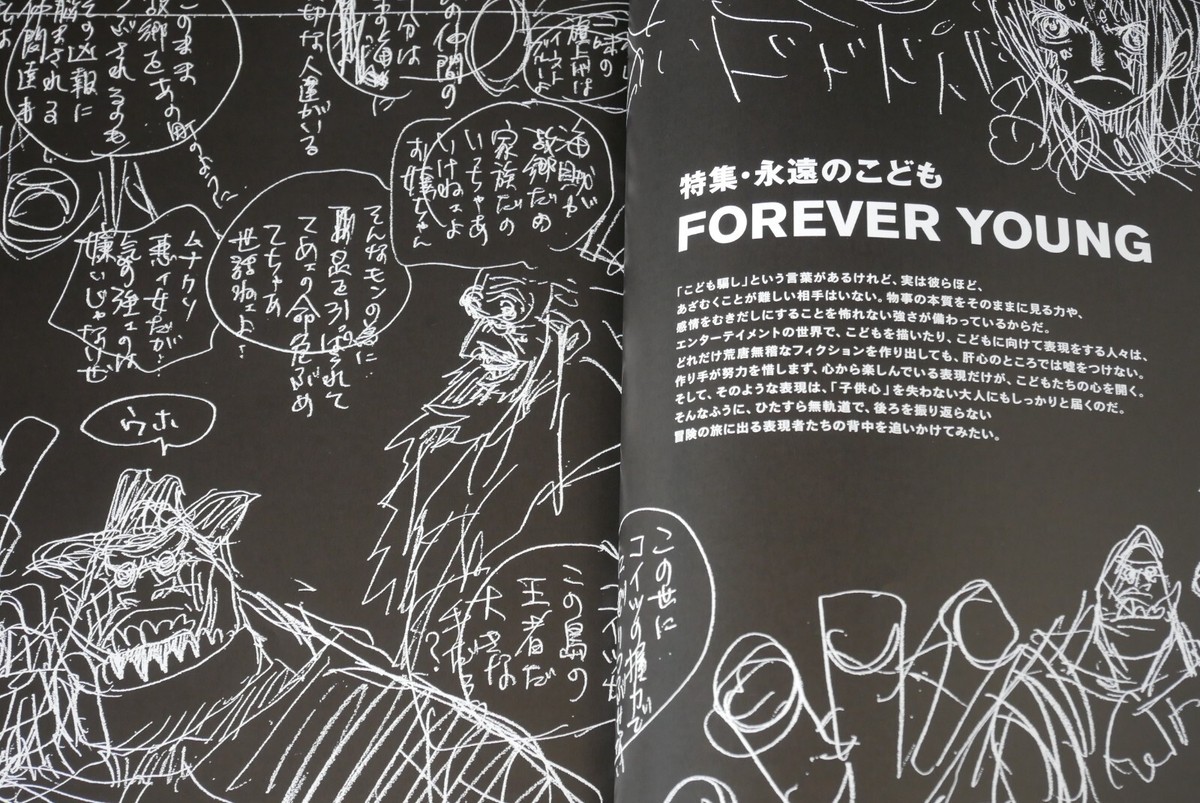 特集・永遠のこども
FOREVER YOUNG
「こども騙し」という言葉があるけれど、実は彼らほど、
あざむくことが難しい相手はいない。物事の本質をそのままに見る力や、
感情をむきだしにすることを怖れない強さが備わっているからだ。
エンターテイメントの世界で、こどもを描いたり、こどもに向けて表現をする人々は、
どれだけ荒唐無稽なフィクションを作り出しても、肝心のところでは嘘をつけない。
作り手が努力を惜しまず、心から楽しんでいる表現だけが、こどもたちの心を開く。
そして、そのような表現は、「子供心」を失わない大人にもしっかりと届くのだ。
そんなふうに、ひたすら無軌道で、後ろを振り返らない
冒険の旅に出る表現者たちの背中を追いかけてみたい。
ドドドドド
海賊が
故郷だの
家族だの
いっちゃあ
いけねェよ
お嬢ちゃん
そんなモンの為に
後ろ引っぱられて
てめェの命危ぶめ
てちゃあ
世話ねェよ
ムナクソ
悪ィ女だが…
気の強ェのは
嫌いじゃないぜ
このまま
故郷をあの町のように
つぶされるのも
その凶報に
悩まされる
仲間達も
切な人達がいる
ウホ
この島の
王者だ
大きな
この世に
コイツの握力で